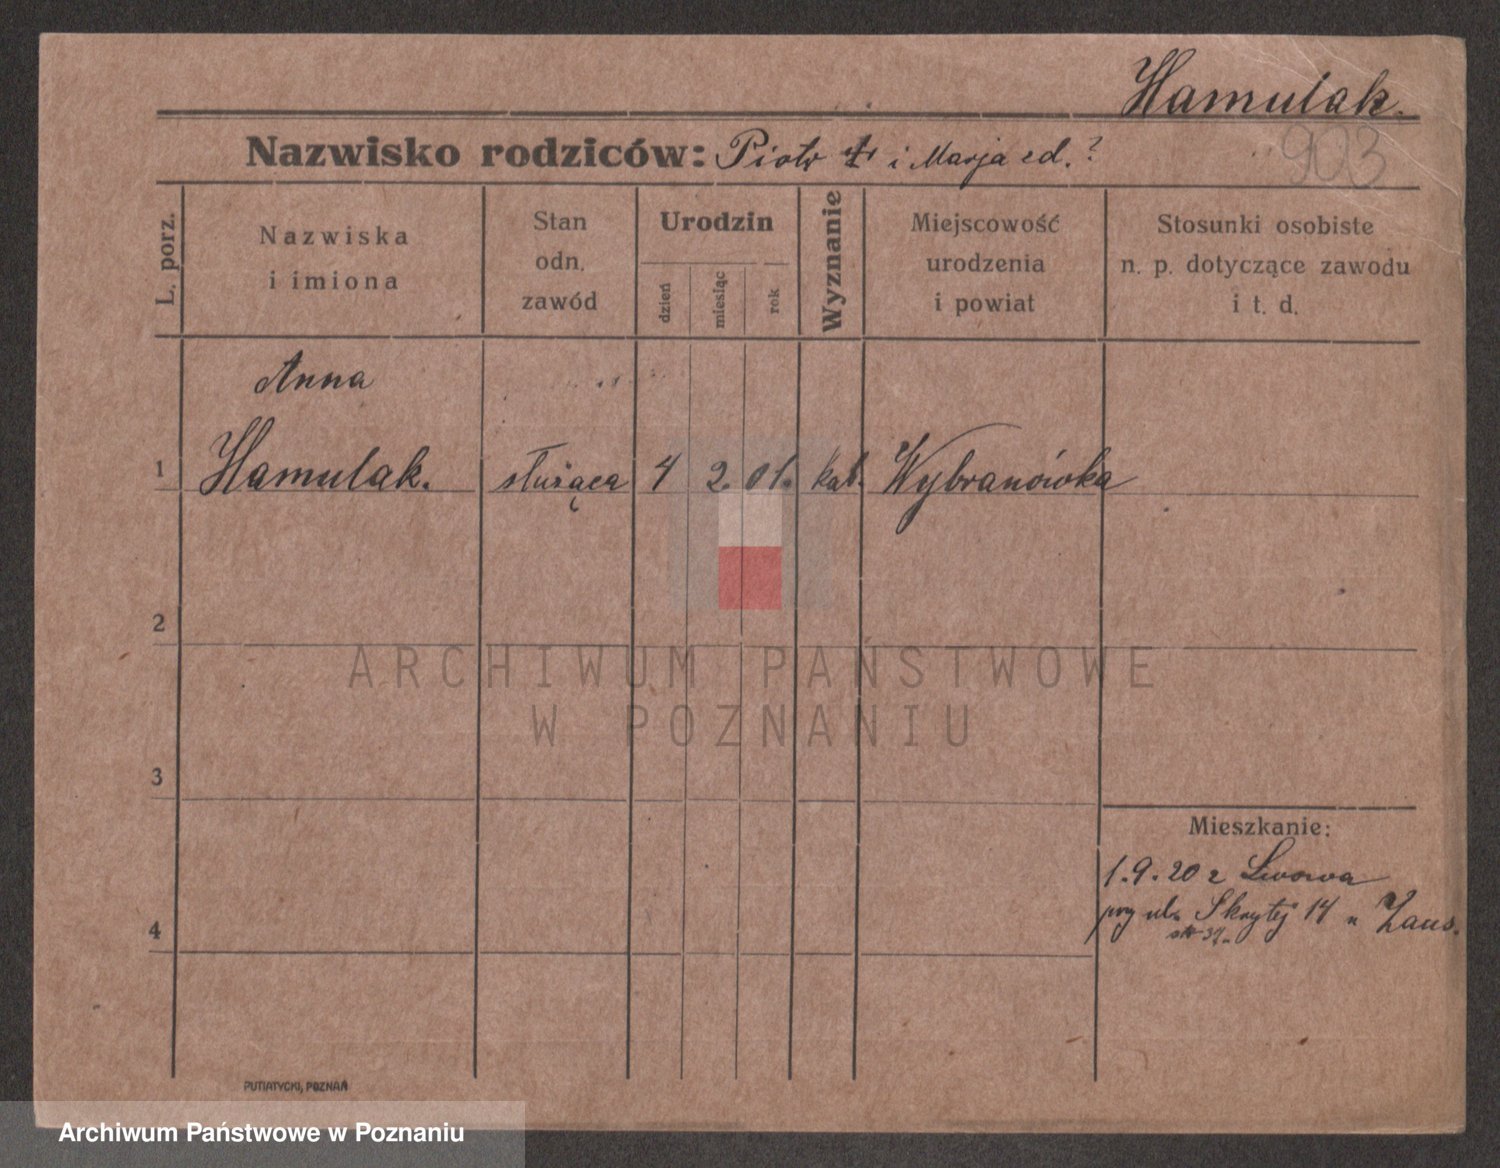 Hamulak.
903
Nazwisko rodziców: Piotr i Marja
L. porz.
Nazwiska
i imiona
Stan
odn.
zawód
Urodzin
dzień
miesiąc
rok
Wyznanie
Miejscowość
urodzenia
i powiat
Stosunki osobiste
n. p. dotyczące zawodu
i t. d.
Anna
1 Hamulak. służąca 4 2. 01. kat. Wybranówka
2
ARCHIWUM PAŃSTWOWE
W POZNANIU
3
Mieszkanie:
1.9.20 z Lwowa
przy ul. Skrytej 14 u Zaus.
4
PUTIATYCKI, POZNAŃ
Archiwum Państwowe w Poznaniu